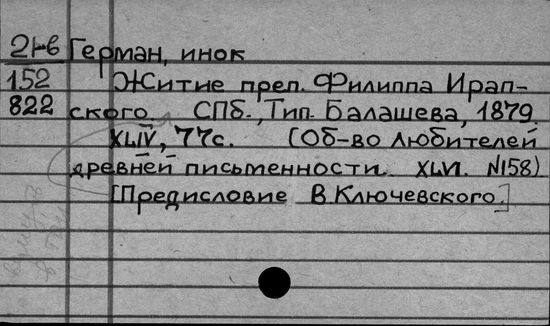 21-в Герман, инок
152 Житие преп. Филиппа Ирап-
822 ского СПб., Тип. Балашева, 1879.
XLIV, 77с. (Об-во любителей
древней письменности. XLVI. №158)
[Предисловие В. Ключевского.]